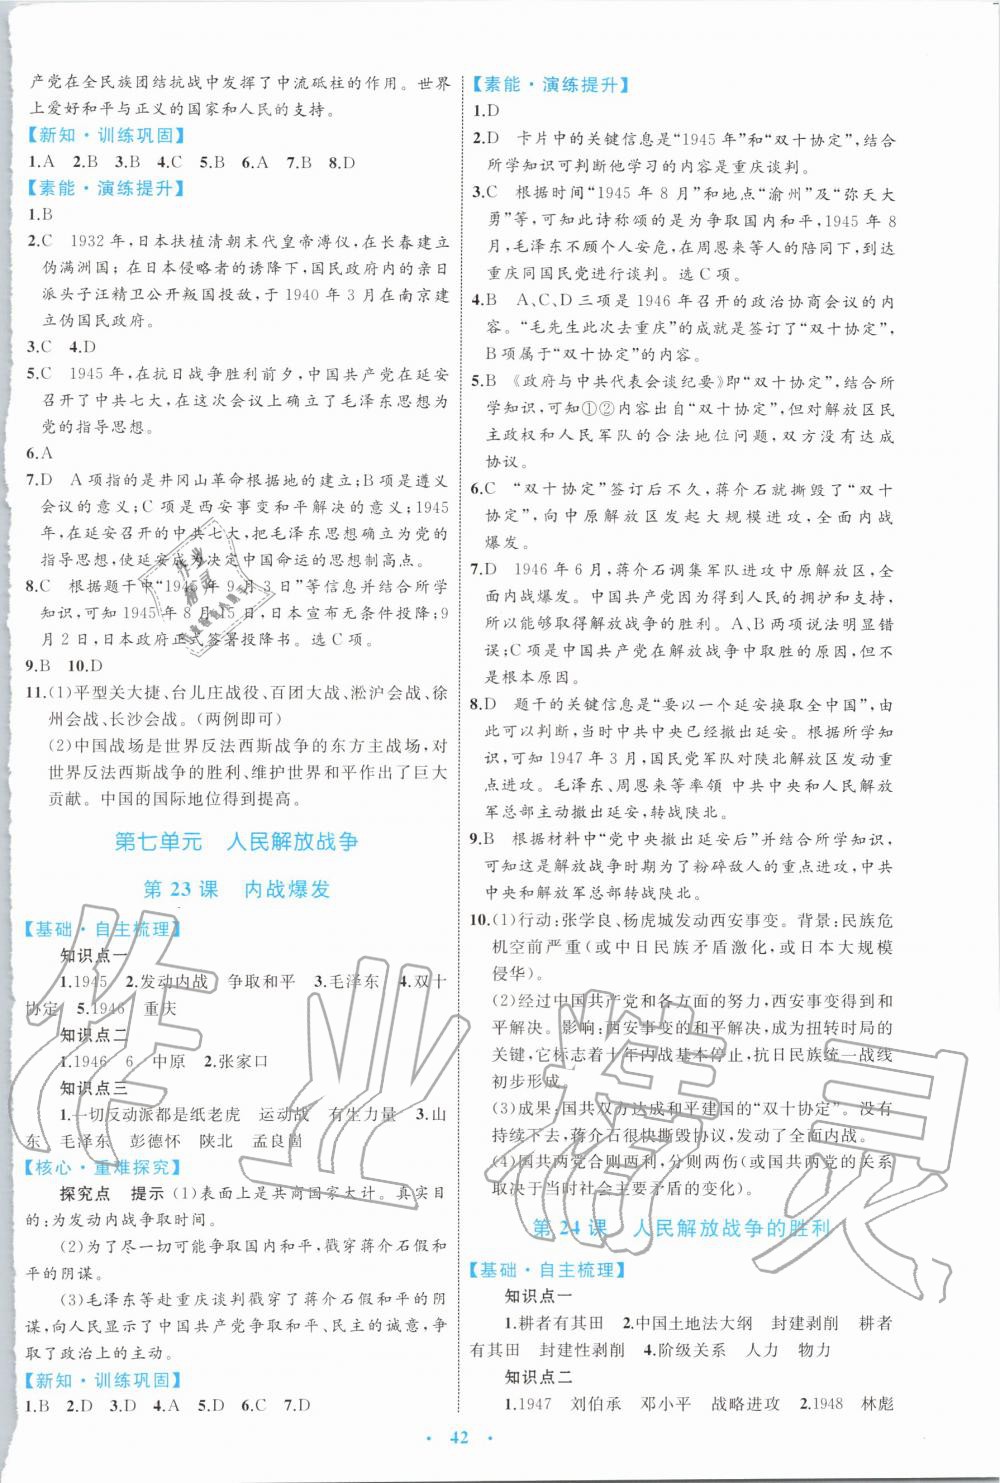 产党在全民族团结抗战中发挥了中流砥柱的作用。世界
上爱好和平与正义的国家和人民的支持。
【新知·训练巩固】
1.A 2.B 3.B 4.C 5.B 6.A 7.B 8.D
【素能·演练提升】
1.B
2.C 1932年,日本扶植清朝末代皇帝溥仪,在长春建立
伪满洲国;在日本侵略者的诱降下,国民政府内的亲日
派头子汪精卫公开叛国投敌,于1940年3月在南京建
立伪国民政府。
3.C 4.D
5.C 1945年,在抗日战争胜利前夕,中国共产党在延安
召开了中共七大,在这次会议上确立了毛泽东思想为
党的指导思想。
6.A
7.D A项指的是井冈山革命根据地的建立;B项是遵义
会议的意义;C项是西安事变和平解决的意义;1945
年,在延安召开的中共七大,把毛泽东思想确立为党的
指导思想,使延安成为决定中国命运的思想制高点。
8.C 根据题干中“1945年9月3日”等信息并结合所学
知识,可知1945年8月15日,日本宣布无条件投降;9
月2日,日本政府正式签署投降书。选C项。
9.B 10.D
11.(1)平型关大捷、台儿庄战役、百团大战、淞沪会战、徐
州会战、长沙会战。(两例即可)
(2)中国战场是世界反法西斯战争的东方主战场,对
世界反法西斯战争的胜利、维护世界和平作出了巨大
贡献。中国的国际地位得到提高。
第七单元 人民解放战争
第23课 内战爆发
【基础·自主梳理】
知识点一
1.1945 2.发动内战 争取和平 3.毛泽东 4.双十
协定 5.1946 重庆
知识点二
1.1946 6 中原 2.张家口
知识点三
1.一切反动派都是纸老虎 运动战 有生力量 3.山
东、毛泽东 彭德怀 陕北 孟良崮
【核心·重难探究】
探究点 提示 (1)表面上是共商国家大计。真实目
的:为发动内战争取时间。
(2)为了尽一切可能争取国内和平,戳穿蒋介石假和
平的阴谋。
(3)毛泽东等赴重庆谈判戳穿了蒋介石假和平的阴
谋,向人民显示了中国共产党争取和平、民主的诚意,争
取了政治上的主动。
【新知·训练巩固】
1.B 2.D 3.D 4.A 5.C 6.C 7.D
【素能·演练提升】
1.D
2.D 卡片中的关键信息是“1945年”和“双十协定”,结合
所学知识可判断他学习的内容是重庆谈判。
3.C 根据时间“1945年8月”和地点“渝州”及“弥天大
勇”等,可知此诗称颂的是为争取国内和平,1945年8
月,毛泽东不顾个人安危,在周恩来等人的陪同下,到达
重庆同国民党进行谈判。选C项。
4.B A、C、D三项是1946年召开的政治协商会议的内
容。“毛先生此次去重庆”的成就是签订了“双十协定”,
B项属于“双十协定”的内容。
5.B 《政府与中共代表会谈纪要》即“双十协定”,结合所
学知识,可知①②内容出自“双十协定”,但对解放区民
主政权和人民军队的合法地位问题,双方没有达成
协议。
6.C “双十协定”签订后不久,蒋介石就撕毁了“双十
协定”,向中原解放区发起大规模进攻,全面内战
爆发。
7.D 1946年6月,蒋介石调集军队进攻中原解放区,全
面内战爆发。中国共产党因为得到人民的拥护和支持,
所以能够取得解放战争的胜利。A、B两项说法明显错
误;C项是中国共产党在解放战争中取胜的原因,但不
是根本原因。
8.D 题干的关键信息是“要以一个延安换取全中国”,由
此可以判断,当时中共中央已经撤出延安。根据所学知
识可知,1947年3月,国民党军队对陕北解放区发动重
点进攻。毛泽东、周恩来等率领中共中央和人民解放军
总部主动撤出延安,转战陕北。
9.B 根据材料中“党中央撤出延安后”并结合所学知识,
可知这是解放战争时期为了粉碎敌人的重点进攻,中共
中央和解放军总部转战陕北。
10.(1)行动:张学良、杨虎城发动西安事变。背景:民族危
机空前严重(或中日民族矛盾激化,或日本大规模
侵华)。
(2)经过中国共产党和各方面的努力,西安事变得到和
平解决。影响:西安事变的和平解决,成为扭转时局的
关键,它标志着十年内战基本停止,抗日民族统一战线
初步形成。
(3)成果:国共双方达成和平建国的“双十协定”。没有
持续下去,蒋介石很快撕毁协议,发动了全面内战。
(4)国共两党合则两利,分则两伤(或国共两党的关系
取决于当时社会主要矛盾的变化)。
第24课 人民解放战争的胜利
【基础·自主梳理】
知识点一
1.耕者有其田 2.中国土地法大纲 封建剥削 耕者
有其田 封建性剥削 4.阶级关系 人力 物力
知识点二
1.1947 刘伯承 邓小平 战略进攻 2.1948 林彪
· 42 ·
作业精灵